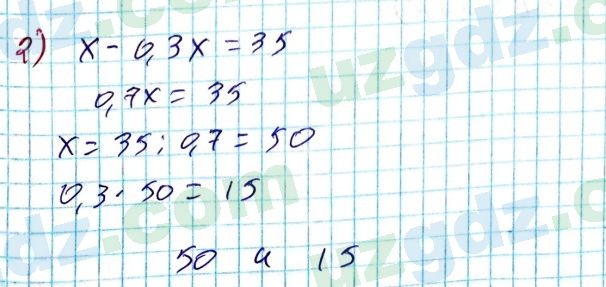 2) x - 0,3x = 35
0,7x = 35
x = 35 : 0,7 = 50
0,3 · 50 = 15
50 и 15
uzgdz.com